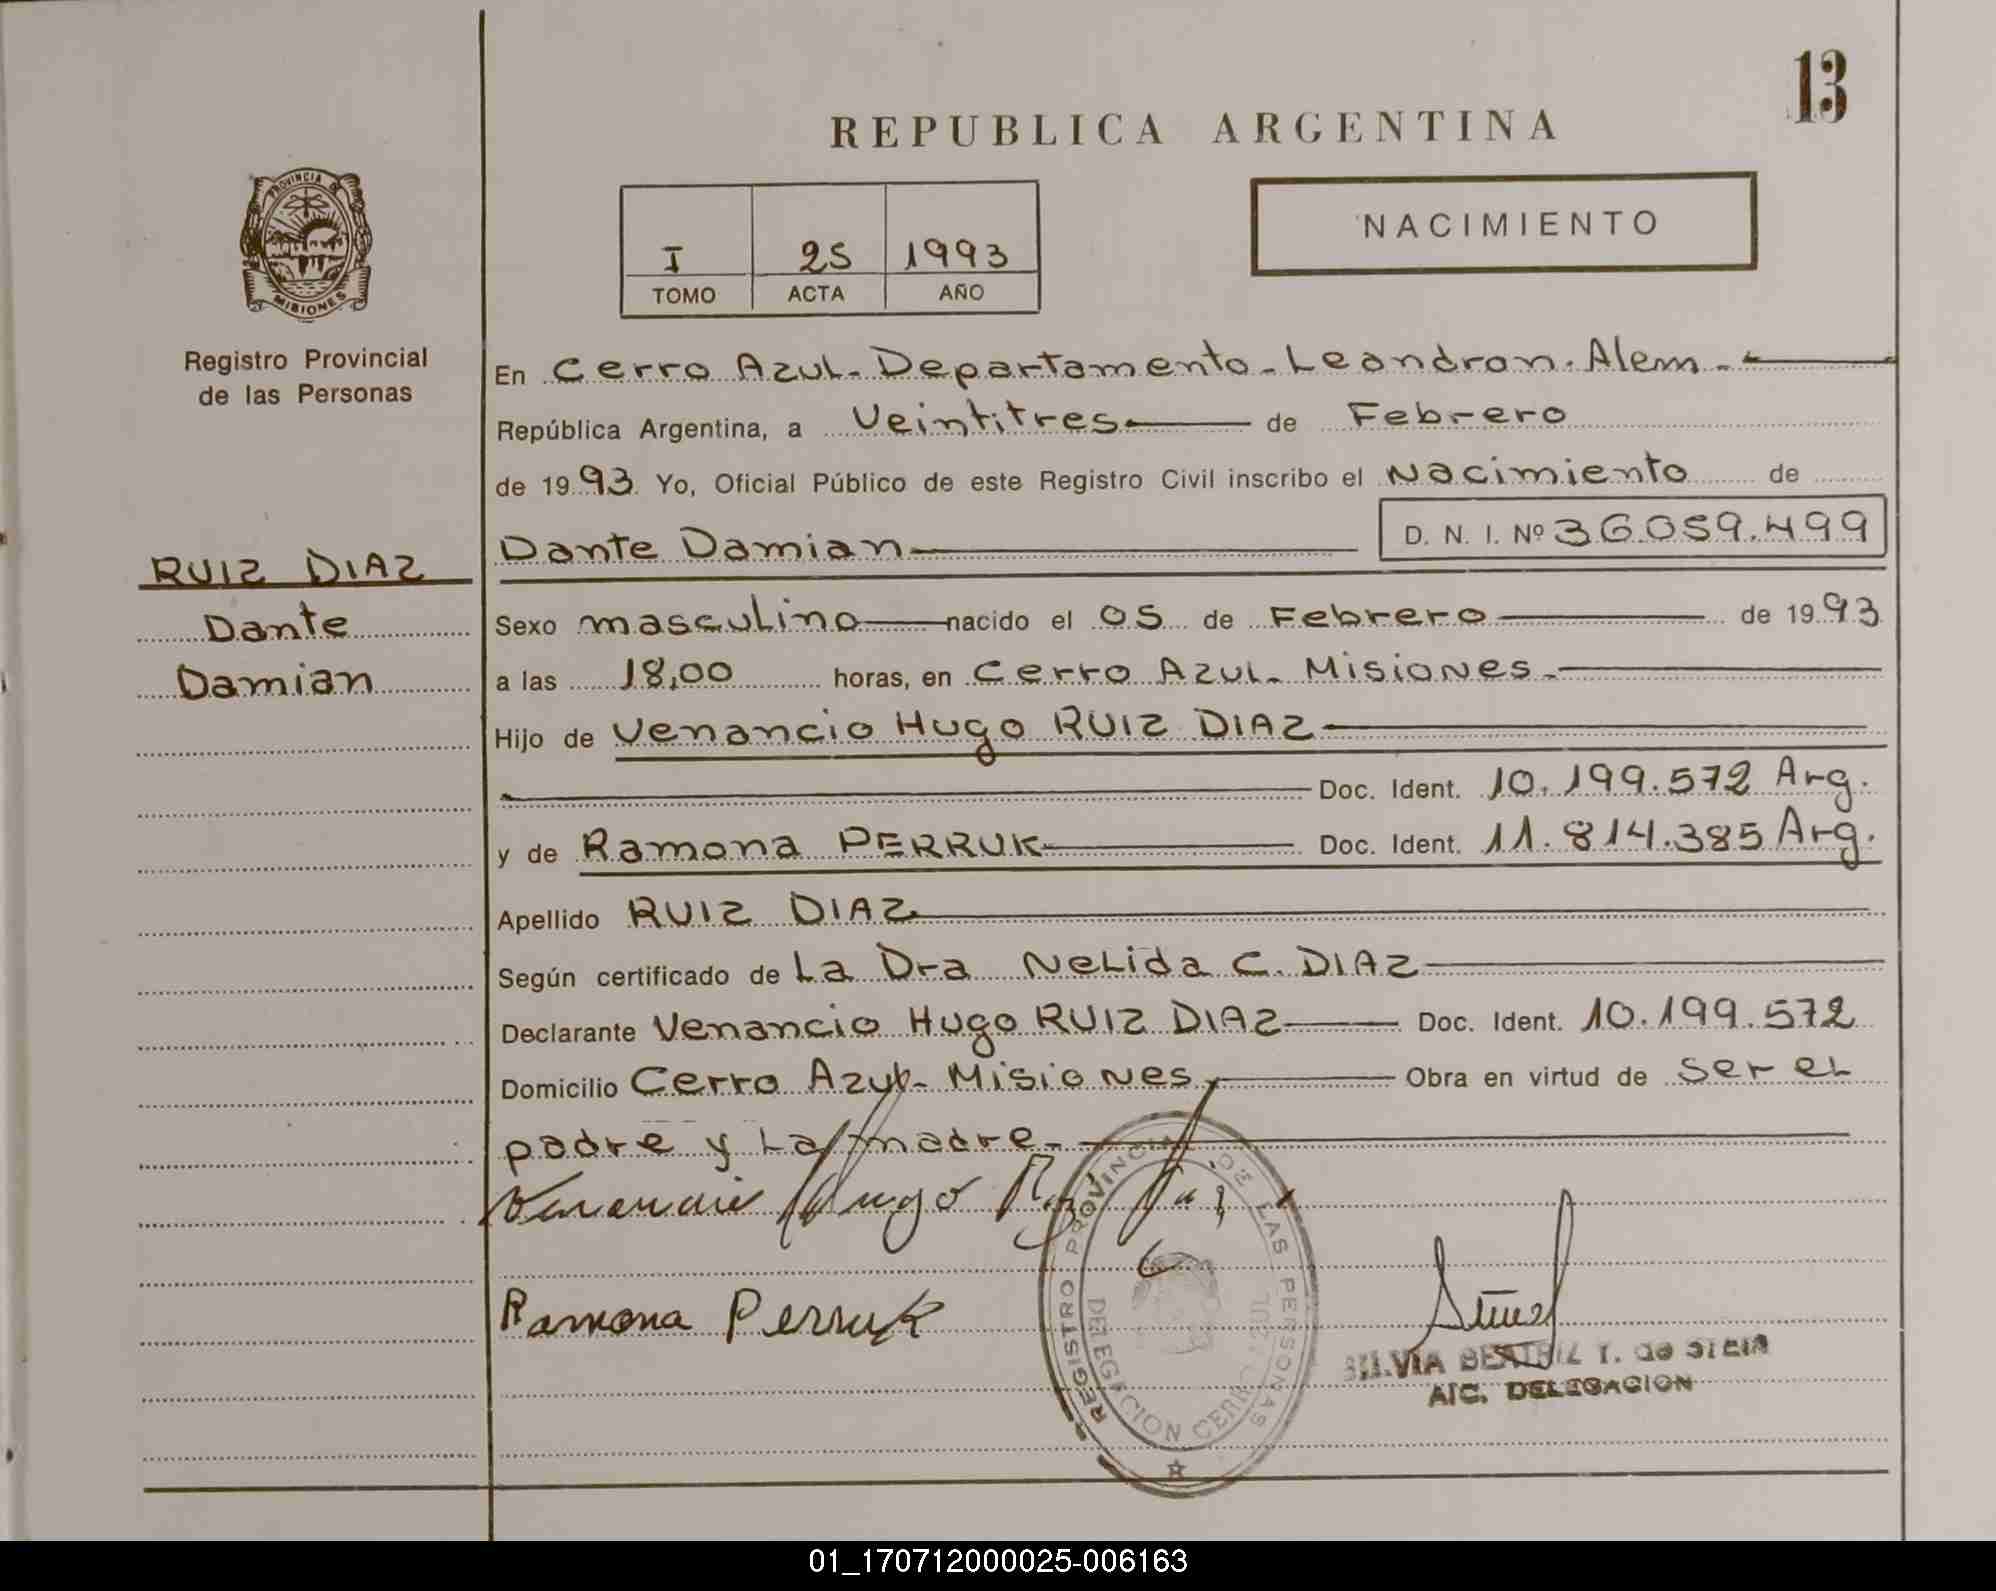 13
REPUBLICA ARGENTINA
NACIMIENTO
I 25 1993
TOMO ACTA AÑO
PROVINCIA DE MISIONES
Registro Provincial
de las Personas
En Cerro Azul - Departamento - Leandro n. Alem -
República Argentina, a Veintitres de Febrero
de 1993 Yo, Oficial Público de este Registro Civil inscribo el Nacimiento de
Dante Damian D. N. I. Nº 36.059.499
RUIZ DIAZ
Dante
Damian
Sexo masculino nacido el 05 de Febrero de 1993
a las 18,00 horas, en Cerro Azul - Misiones -
Hijo de Venancio Hugo RUIZ DIAZ
Doc. Ident. 10.199.572 Arg.
y de Ramona PERRUK Doc. Ident. 11.814.385 Arg.
Apellido RUIZ DIAZ
Según certificado de La Dra Nelida C. DIAZ
Declarante Venancio Hugo RUIZ DIAZ Doc. Ident. 10.199.572
Domicilio Cerro Azul - Misiones Obra en virtud de ser el
padre y La madre -
Venancio Hugo Ruiz Diaz
Ramona Perruk
REGISTRO PROVINCIAL DE LAS PERSONAS
DELEGACION CERRO AZUL
SILVIA BEATRIZ T. de STEIN
A/C. DELEGACION
01_170712000025-006163